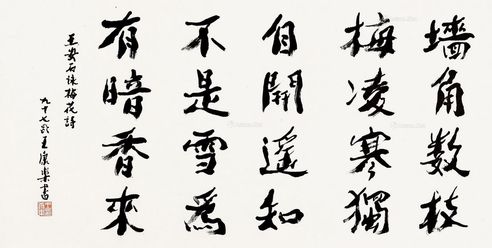 墻角数枝
梅凌寒獨
自開遥知
不是雪爲
有暗香來
王安石詠梅花詩
九十七王康樂書